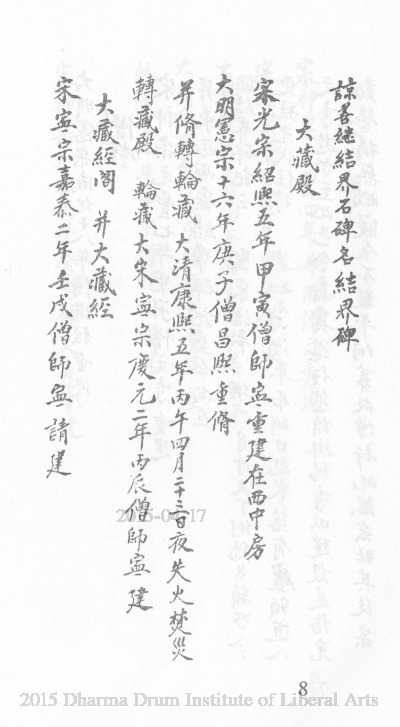 諒善繼結界石碑名結界碑
大藏殿
宋光宗紹熙五年甲寅僧師寍重建在西中房
大明憲宗十六年庚子僧昌熙重脩
并脩轉輪藏 大清康熙五年丙午四月二十三日夜失火焚災
轉藏殿 輪藏大宋寍宗慶元二年丙辰僧師寍建
大藏經閣 并大藏經
宋寍宗嘉泰二年壬戌僧師寍請建
8
2015-04-17
2015 Dharma Drum Institute of Liberal Arts